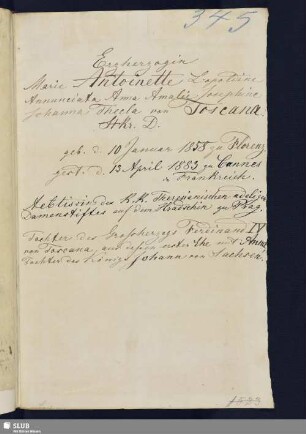 345
Erzherzogin
Marie Antoinette Leopoldine
Annunciata Anna Amalie Josephine
Johanna Thecla von Toscana.
Stkr. D.
geb. d. 10 Januar 1858 zu Florenz
gest. d. 13 April 1883 zu Cannes
in Frankreich.
Aebtissin des K. K. Theresianischen adeligen
Damenstiftes auf dem Hradschin zu Prag.
Tochter des Grossherzogs Ferdinand IV
von Toscana, aus dessen erster Ehe mit Anna
Tochter des Königs Johann von Sachsen.
SLUB
Wir führen Wissen.